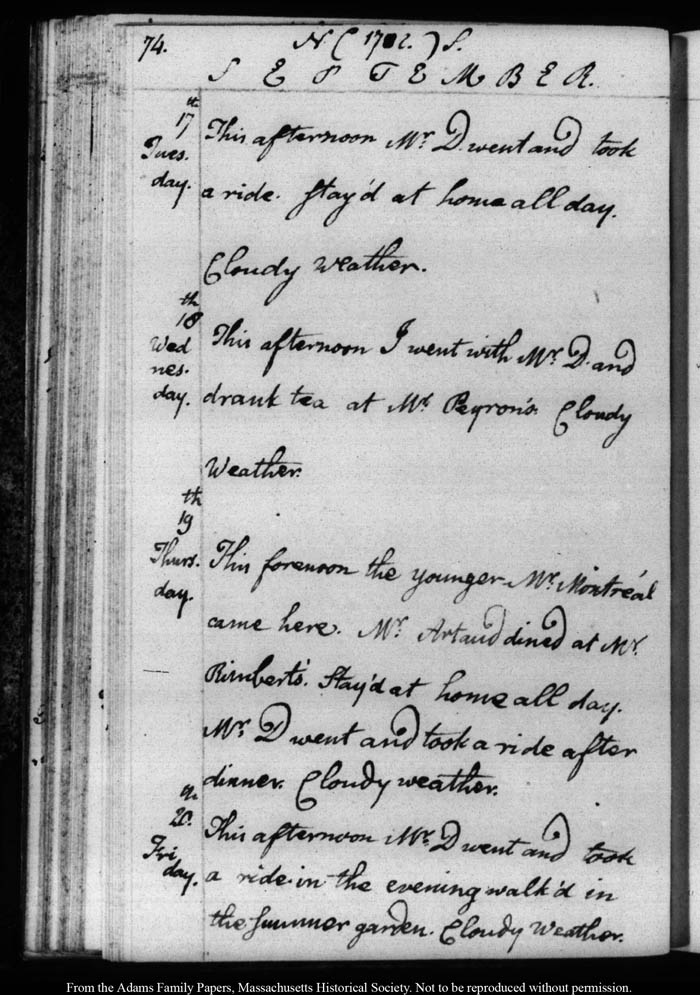 74.
N. (1782.) S.
SEPTEMBER.
17th Tuesday.
This afternoon Mr. D went and took
a ride. Stay'd at home all day.
Cloudy Weather.
18th Wednesday.
This afternoon I went with Mr. D. and
drank tea at Mr. Peyron's. Cloudy
Weather.
19th Thursday.
This forenoon the younger Mr. Montréal
came here. Mr. Artaud dined at Mr.
Rimberts'. Stay'd at home all day.
Mr. D went and took a ride after
dinner. Cloudy weather.
20th Friday.
This afternoon Mr. D went and took
a ride. in the evening walk'd in
the Summer garden. Cloudy Weather.
From the Adams Family Papers, Massachusetts Historical Society. Not to be reproduced without permission.